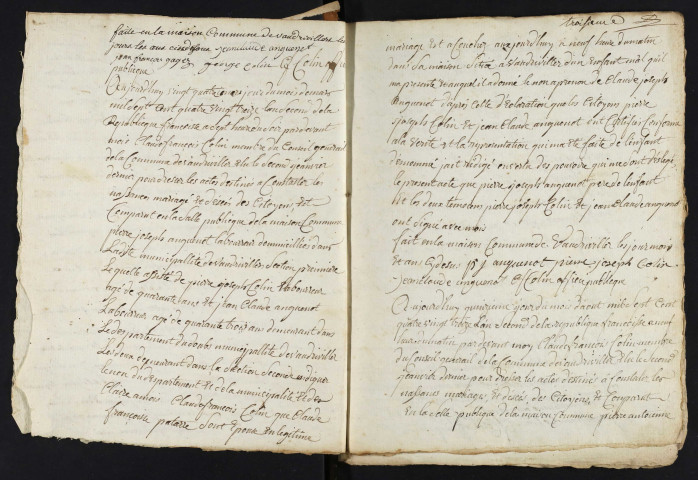 faite en la maison Commune de vaudrivillers les
jours les ans cidessus jeanclaude anguenot
jean francois gages george Colin Cf Colin offi
publique
Aujourdhuy vingt quatre jour du mois de mars
mil sept cent quatre vingt treize lan second de la
Republique francoise a sept heure du soir pardevant
mois Claude francois Colin membre du Conseil general
de la Commune de vaudriviller Elu le second janvier
dernier pour dresser les actes destinés a Constater les
naissances mariage et décès des Citoyens Est
Comparut en la salle publique de la maison Commune
pierre joseph anguenot laboureur domiciliés dans
Ladite municipallite de vaudriviller Section premiere
Lequelle assisté de pierre joseph Colin laboureur
agé de quarante ans et jean Claude anguenot
Laboureur agé de quarante trois ans demeurant dans
Le departement du doubs municipallité de vaudriviller
Les deux demeurant dans la Section Seconde
le nom du departement et de la municipalité et
Claire amois Claude francois Colin que Claude
francoise patarre Sont Epouse En legitime
troisieme
mariage est accouchez aujourdhuy a neuf heure du matin
dans sa maison située a Vaudriviller dun Enfant mal quil
ma presenté et auquel il a donné le nom a prenom de Claude joseph
Anguenot dapres cette declaration que les Citoyens pierre
joseph Colin et jean Claude anguenot ont Certifies Conforme
a la verité et la representation qui ma eté faite de lenfant
denommé jait redigé en vertu des pouvoirs qui me sont delegé
le present acte que pierre joseph anguenot pere de lenfant
Et les deux temoins pierre joseph Colin et jean Claude anguenot
ont signé avec mois
fait en la maison Commune de Vaudriviller les jour mois
et ans Cy dessus p j anguenot pierre joseph Colin
jean Claude anguenot Cf Colin officie publique
Aujourdhuy quinzieme jour du mois daout mille sept Cent
quatre vingt treize lan second de la republique francoise a neuf
heure du matin par devant moy Claude francois Colin membre
du Conseil general de la Commune de vaudriviller Elu le Second
janvier dernier pour dresser les actes destinés a Constater les
naissances mariages, et décès, des Citoyens, Est Comparut
En la Salle publique de la maison Commune pierre antoinne